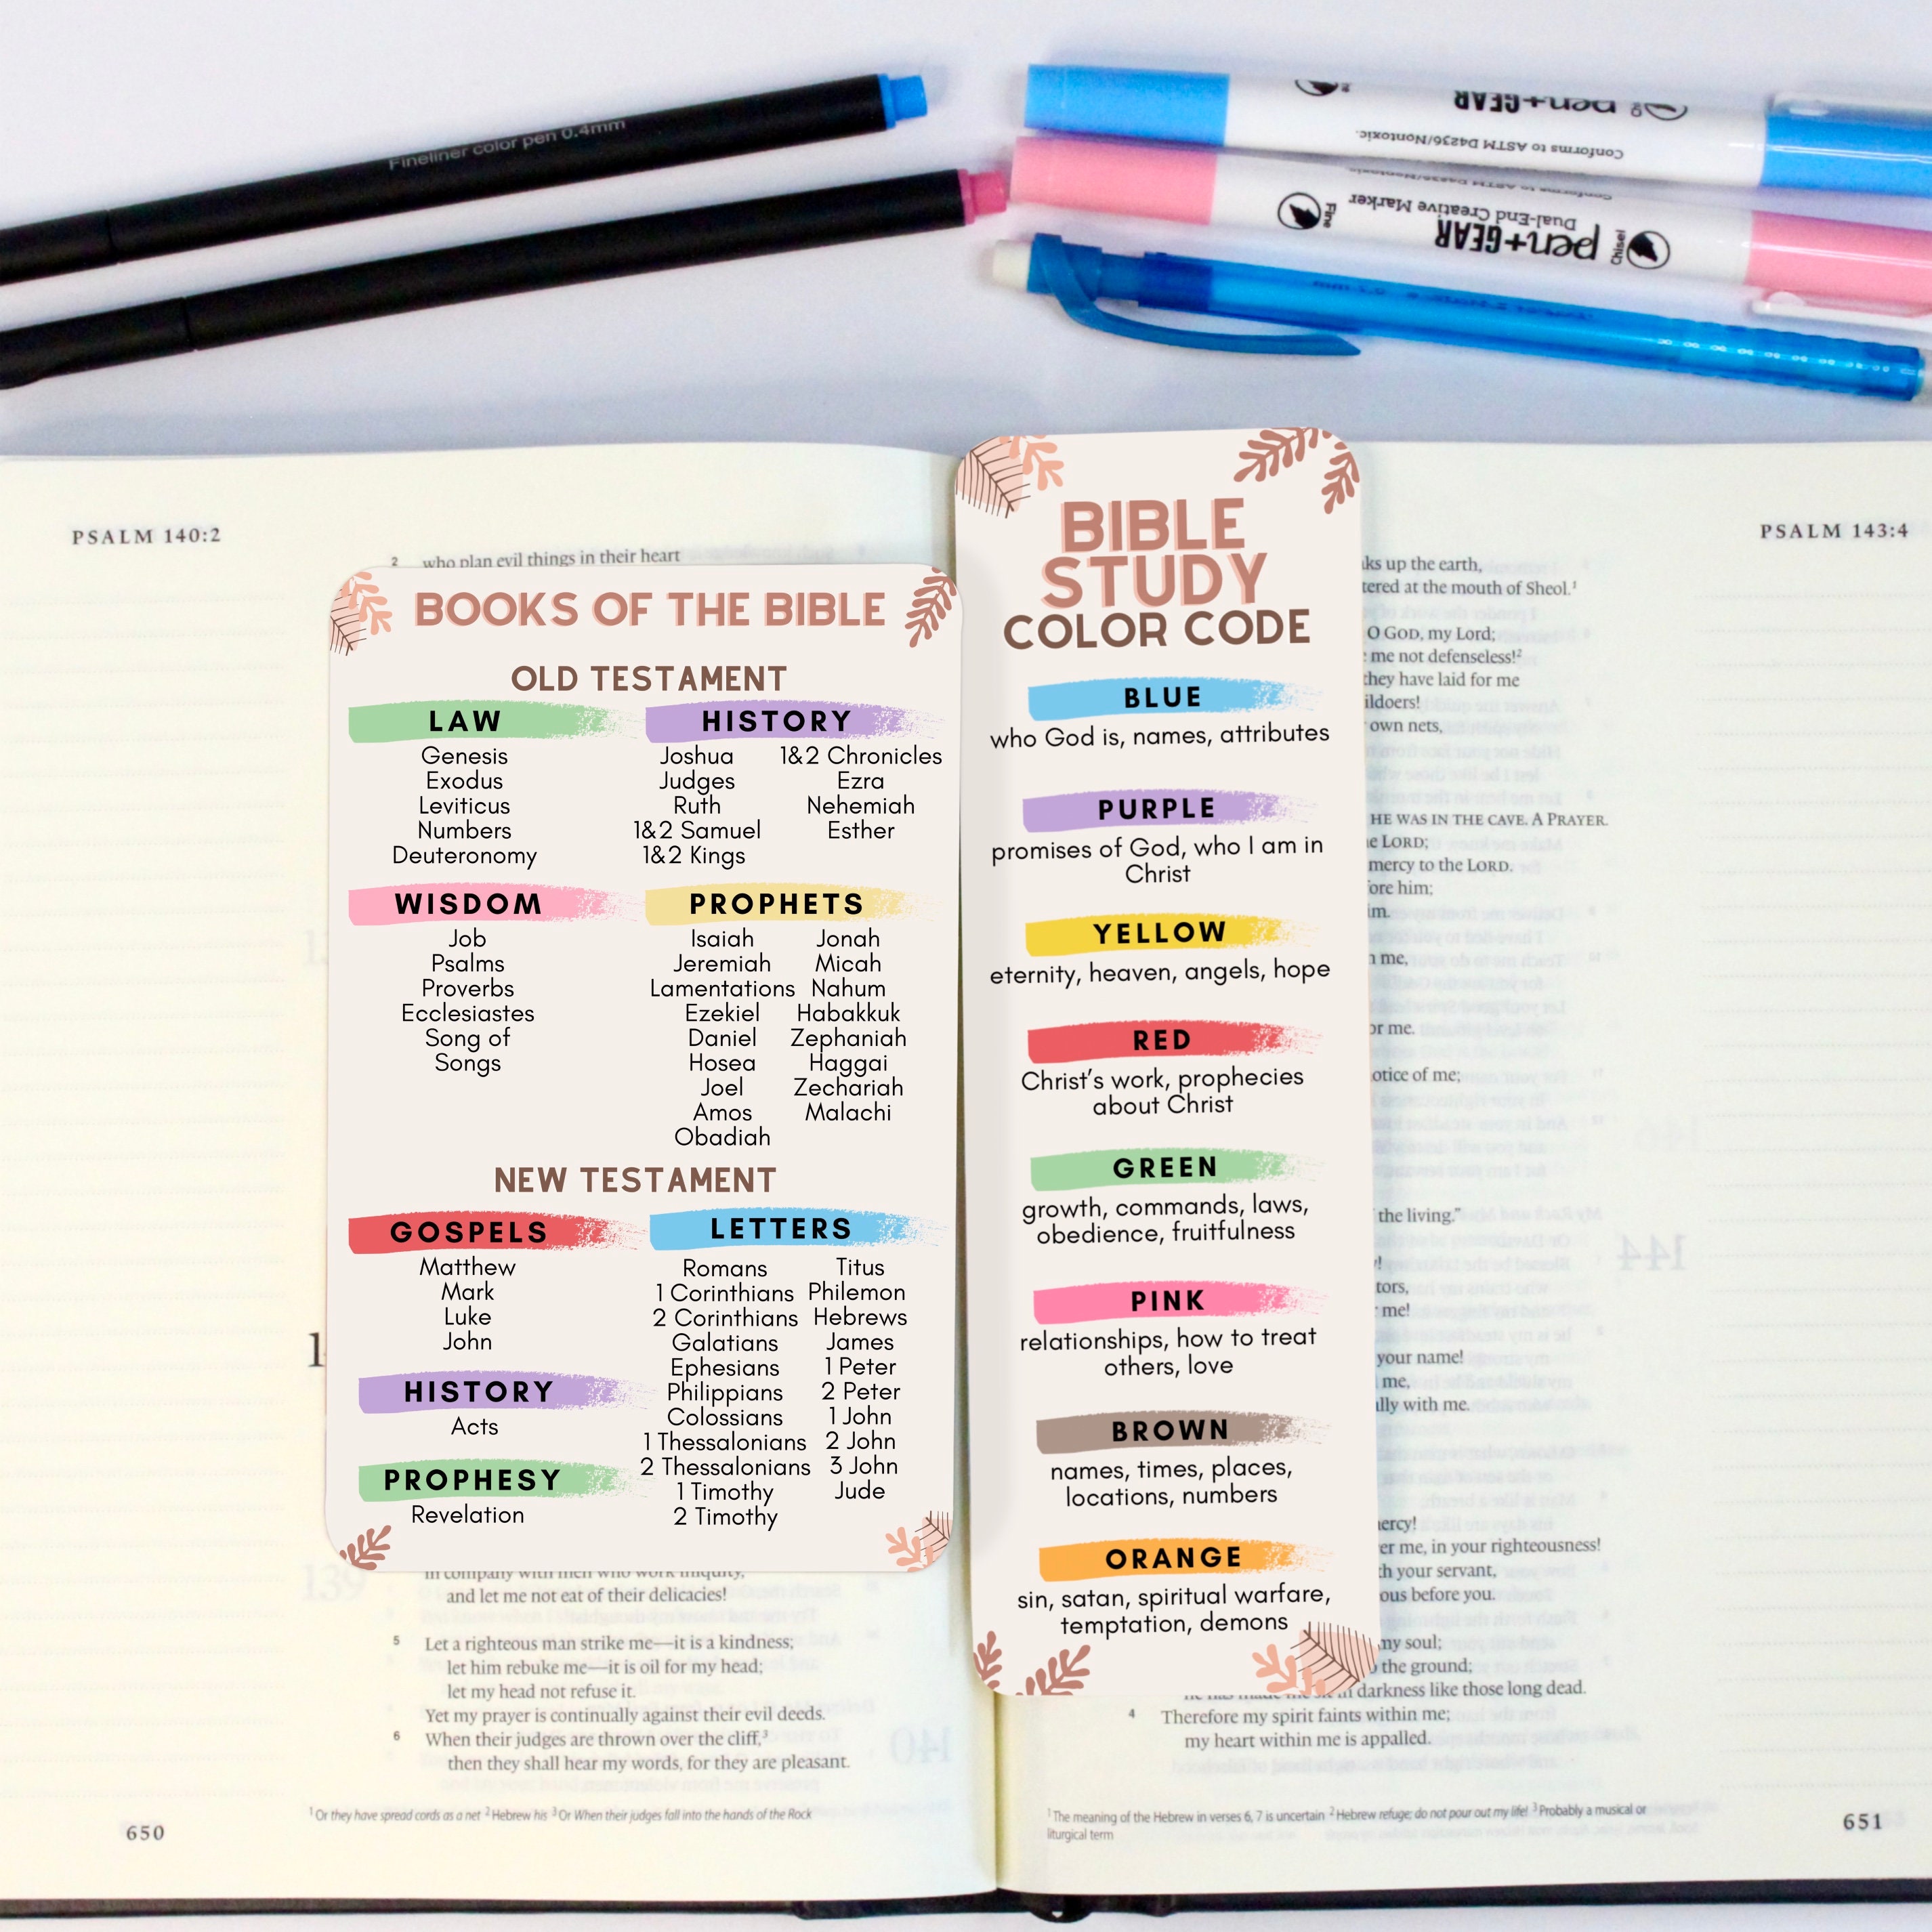 Fineliner color pen 0.4mm
pen+GEAR
Conforms to ASTM D4236/Nontoxic.
Dual-End Creative Marker
Fine
pen+GEAR
Chisel
PSALM 140:2
2 who plan evil things in their heart
BOOKS OF THE BIBLE
OLD TESTAMENT
LAW
Genesis
Exodus
Leviticus
Numbers
Deuteronomy
HISTORY
Joshua
Judges
Ruth
1&2 Samuel
1&2 Kings
1&2 Chronicles
Ezra
Nehemiah
Esther
WISDOM
Job
Psalms
Proverbs
Ecclesiastes
Song of
Songs
PROPHETS
Isaiah
Jeremiah
Lamentations
Ezekiel
Daniel
Hosea
Joel
Amos
Obadiah
Jonah
Micah
Nahum
Habakkuk
Zephaniah
Haggai
Zechariah
Malachi
NEW TESTAMENT
GOSPELS
Matthew
Mark
Luke
John
HISTORY
Acts
PROPHESY
Revelation
LETTERS
Romans
1 Corinthians
2 Corinthians
Galatians
Ephesians
Philippians
Colossians
1 Thessalonians
2 Thessalonians
1 Timothy
2 Timothy
Titus
Philemon
Hebrews
James
1 Peter
2 Peter
1 John
2 John
3 John
Jude
in company with men who work iniquity,
and let me not eat of their delicacies!
5 Let a righteous man strike me—it is a kindness;
let him rebuke me—it is oil for my head;
let my head not refuse it.
Yet my prayer is continually against their evil deeds.
6 When their judges are thrown over the cliff,3
then they shall hear my words, for they are pleasant.
1 Or they have spread cords as a net 2 Hebrew his 3 Or When their judges fall into the hands of the Rock
650
BIBLE
STUDY
COLOR CODE
BLUE
who God is, names, attributes
PURPLE
promises of God, who I am in
Christ
YELLOW
eternity, heaven, angels, hope
RED
Christ's work, prophecies
about Christ
GREEN
growth, commands, laws,
obedience, fruitfulness
PINK
relationships, how to treat
others, love
BROWN
names, times, places,
locations, numbers
ORANGE
sin, satan, spiritual warfare,
temptation, demons
PSALM 143:4
up the earth,
at the mouth of Sheol.1
O GOD, my Lord;
me not defenseless!2
they have laid for me
own nets,
HE WAS IN THE CAVE. A PRAYER.
LORD;
mercy to the LORD.
him;
me,
or me.
notice of me;
the living."
me!
your name!
me,
with me.
me, in your righteousness!
your servant,
before you.
my soul;
the ground;
in darkness like those long dead.
4 Therefore my spirit faints within me;
my heart within me is appalled.
1 The meaning of the Hebrew in verses 6, 7 is uncertain 2 Hebrew refuge; do not pour out my life! 3 Probably a musical or
liturgical term
651